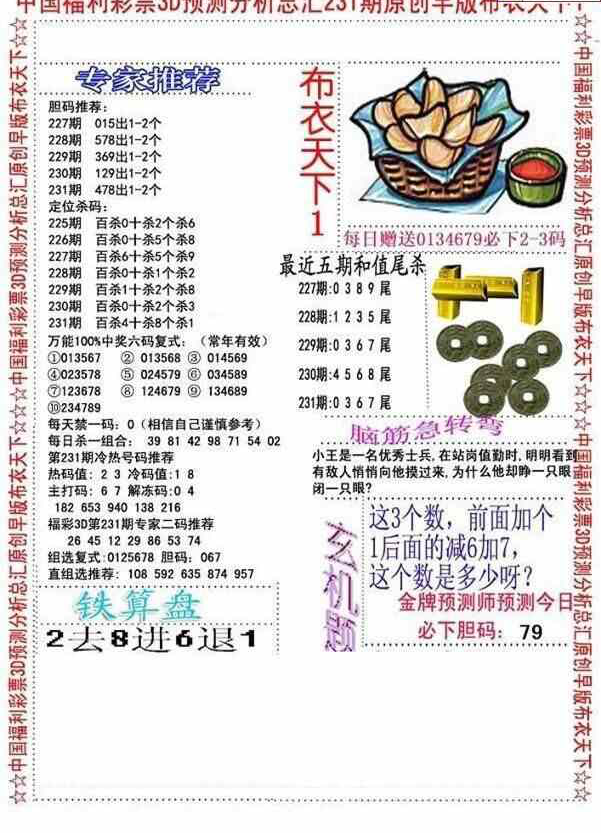 中国福利彩票3D预测分析总汇231期原创早版布衣天下1
☆☆中国福利彩票3D预测分析总汇原创早版布衣天下☆☆☆中国福利彩票3D预测分析总汇原创早版布衣天下☆
专家推荐
胆码推荐：
227期 015出1-2个
228期 578出1-2个
229期 369出1-2个
230期 129出1-2个
231期 478出1-2个
定位杀码：
225期 百杀0十杀2个杀6
226期 百杀0十杀5个杀8
227期 百杀6十杀5个杀9
228期 百杀0十杀1个杀2
229期 百杀1十杀2个杀8
230期 百杀0十杀2个杀3
231期 百杀4十杀8个杀1
万能100%中奖六码复式：（常年有效）
①013567 ② 013568 ③ 014569
④023578 ⑤ 024579 ⑥ 034589
⑦123678 ⑧ 124679 ⑨ 134689
⑩234789
每天禁一码：0（相信自己谨慎参考）
每日杀一组合： 39 81 42 98 71 54 02
第231期冷热号码推荐
热码值：2 3 冷码值:1 8
主打码：6 7 解冻码:0 4
182 653 940 138 216
福彩3D第231期专家二码推荐
26 45 12 29 86 53 74
组选复式:0125678 胆码：067
直组选推荐: 108 592 635 874 957
铁算盘
2去8进6退1
布衣天下1
每日赠送0134679必下2-3码
最近五期和值尾杀
227期:0 3 8 9 尾
228期:1 2 3 5 尾
229期:0 3 6 7 尾
230期:4 5 6 8 尾
231期:0 3 6 7 尾
脑筋急转弯
小王是一名优秀士兵,在站岗值勤时,明明看到
有敌人悄悄向他摸过来,为什么他却睁一只眼
闭一只眼?
玄机题
这3个数，前面加个
1后面的减6加7，
这个数是多少呀?
金牌预测师预测今日
必下胆码： 79
☆☆中国福利彩票3D预测分析总汇原创早版布衣天下☆☆☆中国福利彩票3D预测分析总汇原创早版布衣天下☆☆